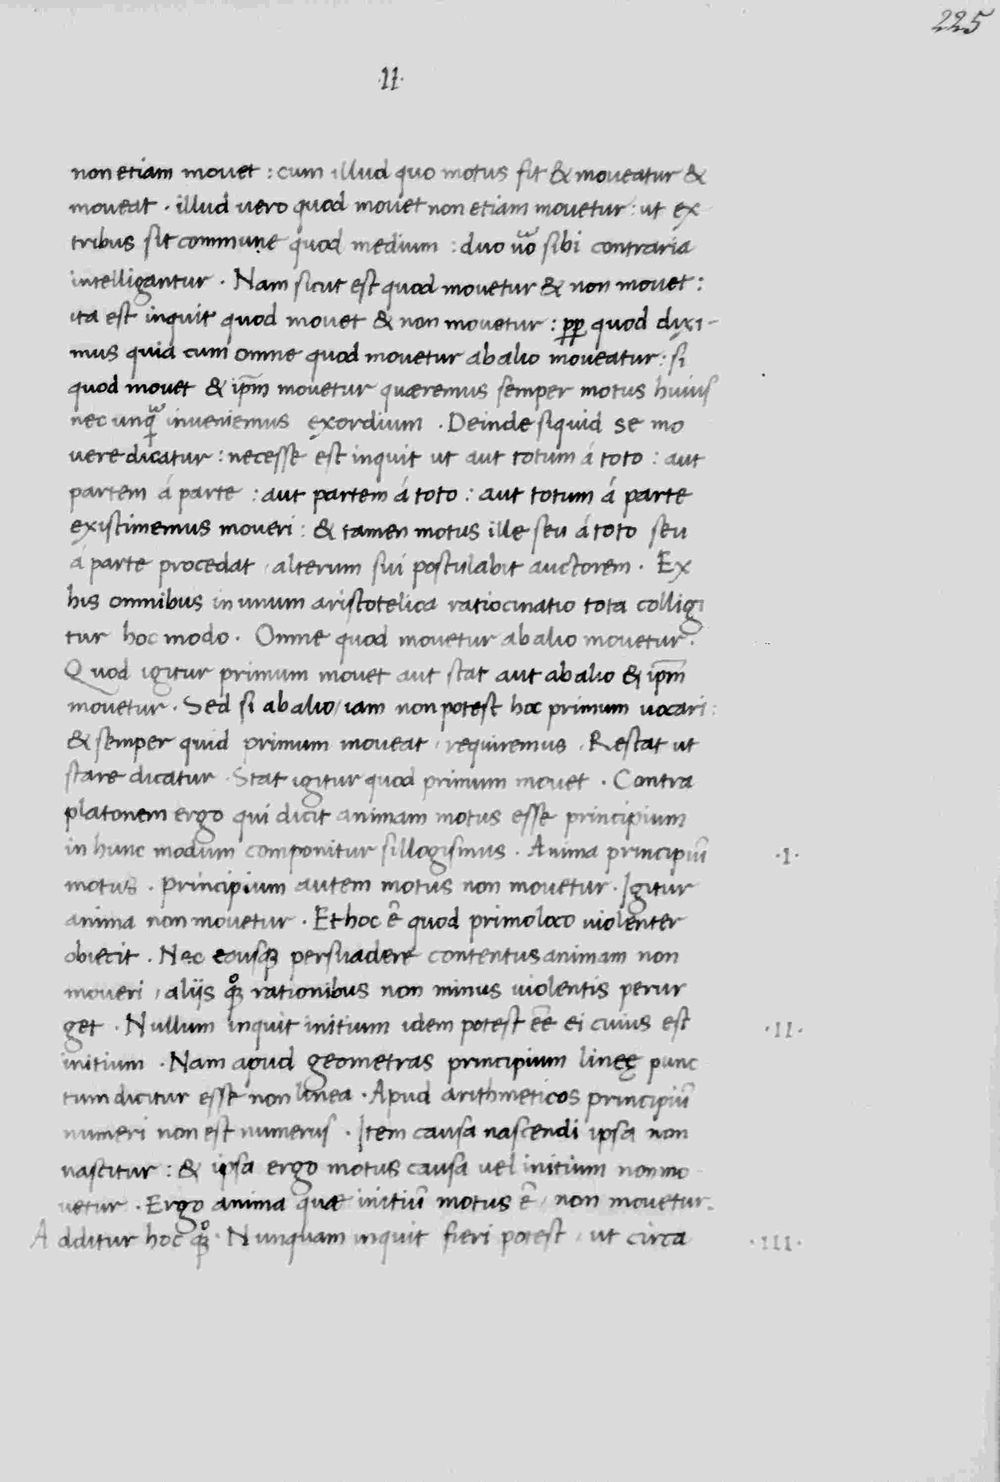 225
·II·
non etiam mouet : cum illud quo motus fit & moueatur &
moueat . illud uero quod mouet non etiam mouetur : ut ex
tribus sit commune quod medium : duo uo sibi contraria
intelligantur . Nam sicut est quod mouetur & non mouet :
ita est inquit quod mouet & non mouetur : pp quod dixi-
mus quia cum omne quod mouetur ab alio moueatur : si
quod mouet & ipm̄ mouetur quæremus semper motus huius
nec unq̃ inueniemus exordium . Deinde siquid se mo
uere dicatur : necesse est inquit ut aut totum á toto : aut
partem á parte : aut partem á toto : aut totum á parte
existimemus moueri : & tamen motus ille seu á toto seu
á parte procedat , alterum sui postulabit auctorem . Ex
his omnibus in unum aristotelica ratiocinatio tota colligi
tur hoc modo . Omne quod mouetur ab alio mouetur .
Quod igitur primum mouet aut stat aut ab alio & ipm̄
mouetur . Sed si ab alio / iam non potest hoc primum uocari :
& semper quid primum moueat , requiremus . Restat ut
stare dicatur . Stat igitur quod primum mouet . Contra
platonem ergo qui dicit animam motus esse principium
in hunc modum componitur sillogismus . Anima principiū ·I·
motus . principium autem motus non mouetur . Igitur
anima non mouetur . Et hoc ē quod primo loco uiolenter
obiecit . Nec eousqꝫ persuadere contentus animam non
moueri , aliis qͦꝫ rationibus non minus uiolentis perur
get . Nullum inquit initium idem potest eē ei cuius est ·II·
initium . Nam apud geometras principium lineę punc
tum dicitur esse non linea . Apud arithmeticos principiū
numeri non est numerus . Item causa nascendi ipsa non
nascitur : & ipsa ergo motus causa uel initium non mo
uetur . Ergo anima quæ initiū motus ē , non mouetur .
Additur hoc qͦꝫ . Nunquam inquit fieri potest , ut circa ·III·